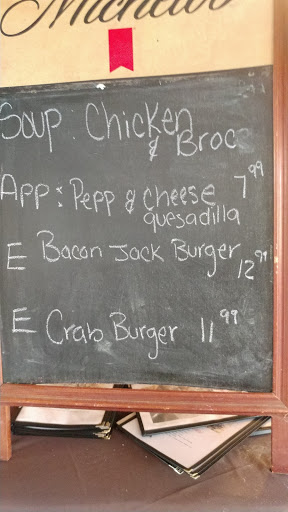 Soup: Chicken
& Broc
App: Pepp & Cheese 7 99
quesadilla
E Bacon Jack Burger 12 99
E Crab Burger 11 99